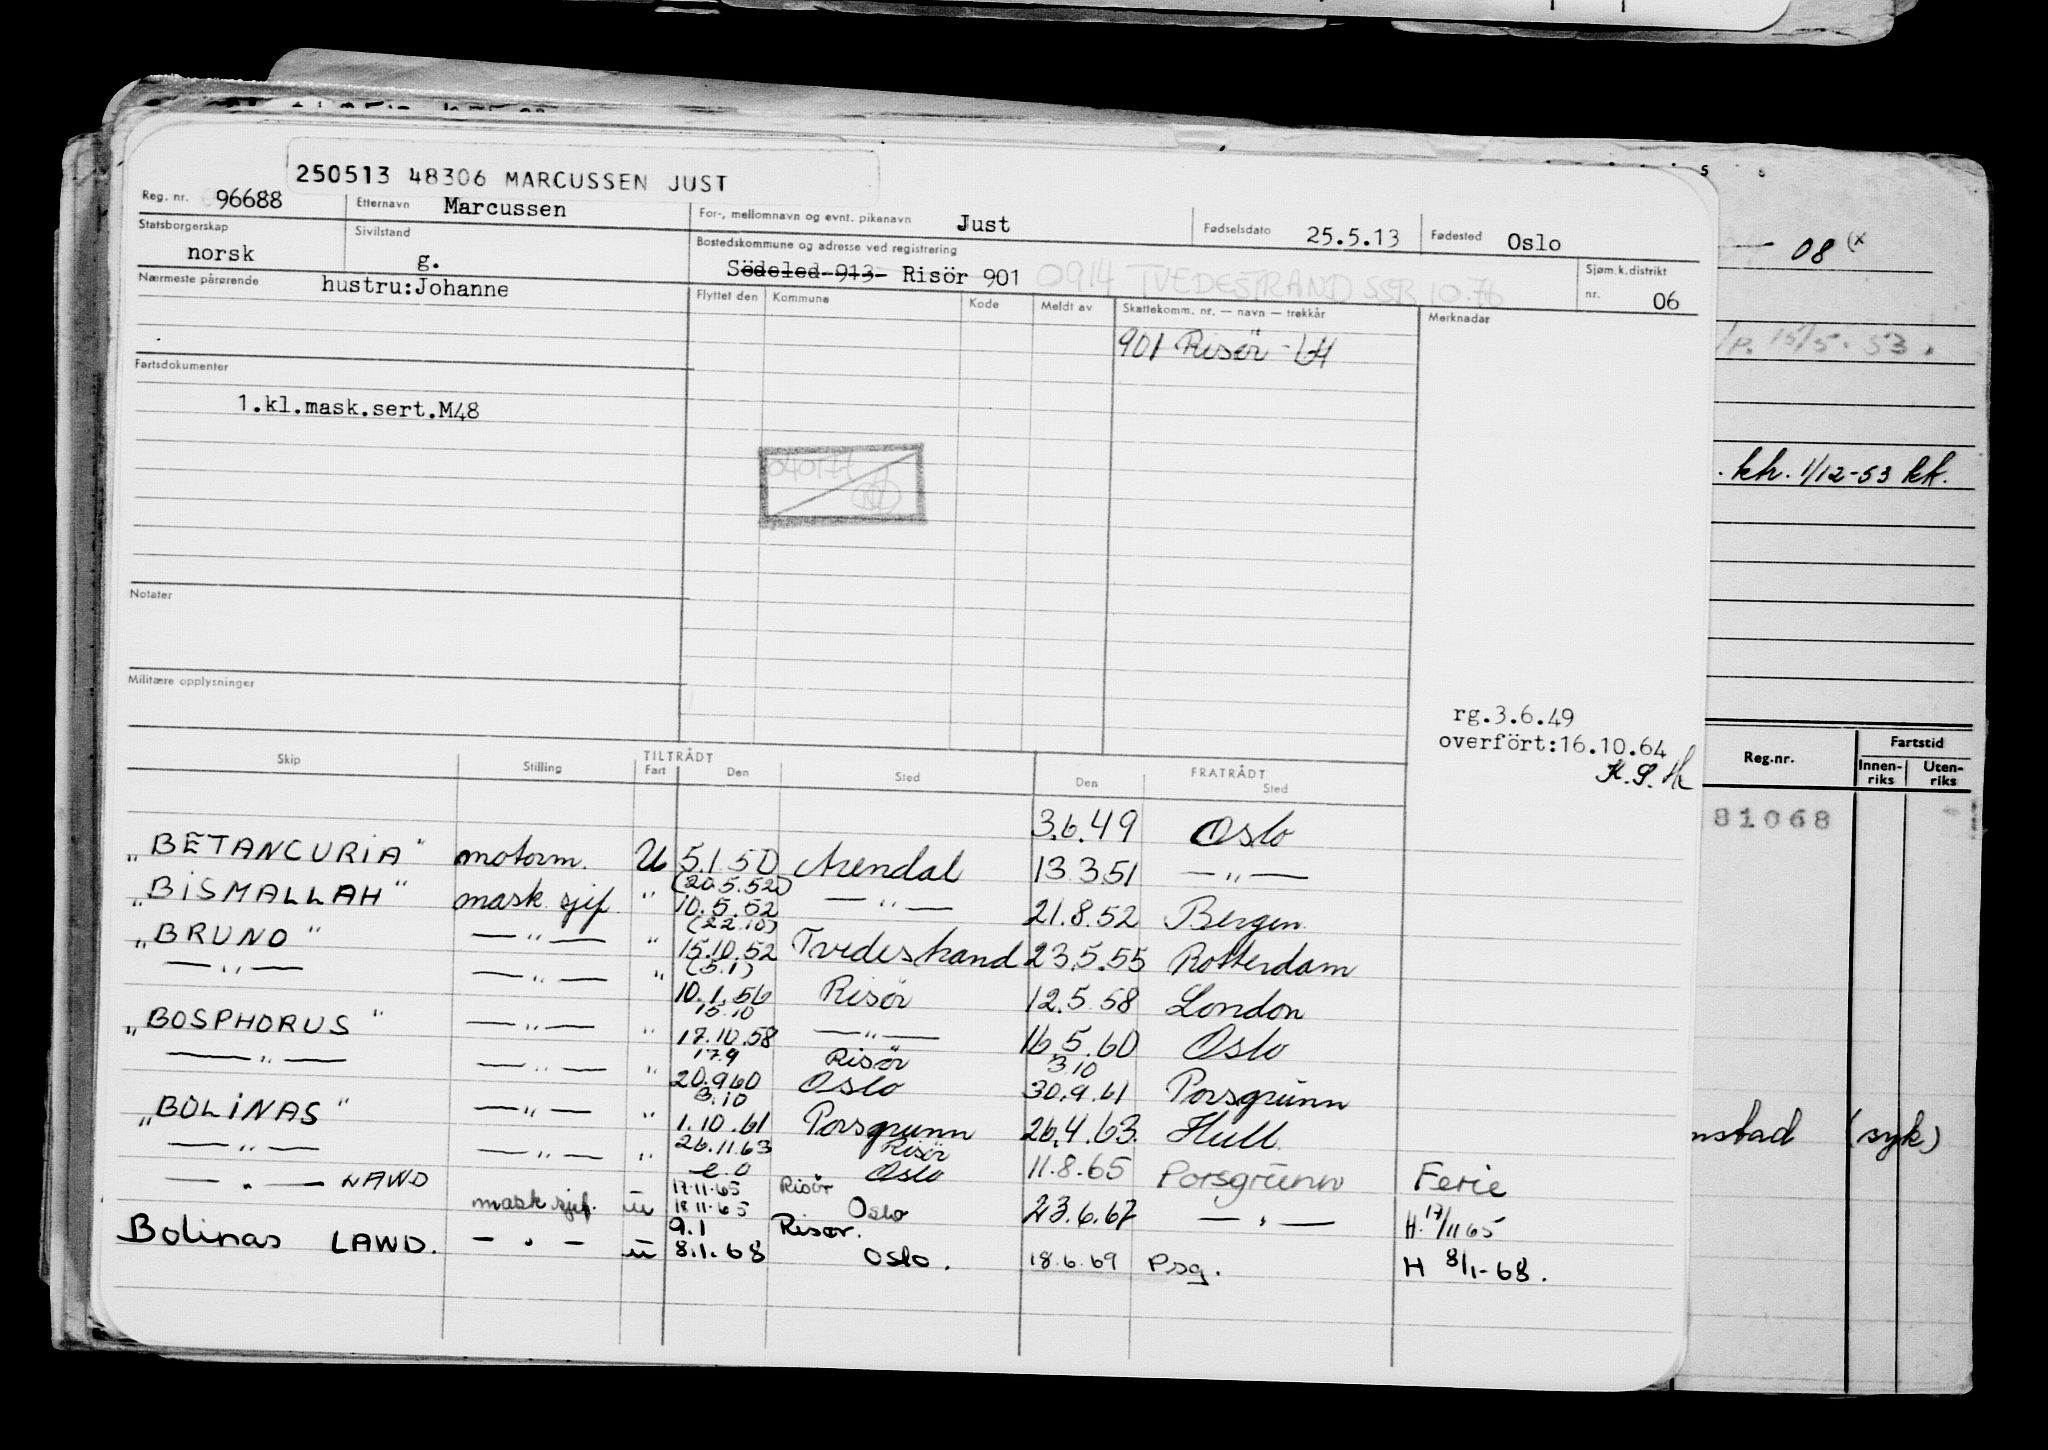 250513 48306 MARCUSSEN JUST
Reg. nr. 96688 Etternavn Marcussen For-, mellomnavn og evnt. pikenavn Just Fødselsdato 25.5.13 Fødested Oslo
Statsborgerskap norsk Sivilstand g. Bostedskommune og adresse ved registrering Södeled 913 Risör 901 0914 TVEDESTRAND SSB 10.76 Sjøm.k.distrikt nr. 06
Nærmeste pårørende hustru:Johanne Flyttet den Kommune Kode Meldt av Skattekomm. nr. — navn — trekkår Merknader
901 Risör -64
Fartsdokumenter
1.kl.mask.sert.M48
Notater
Militære opplysninger
rg.3.6.49
overfört:16.10.64
Skip Stilling TILTRÅDT Fart Den Sted FRATRÅDT Den Sted
3.6.49 Oslo
„BETANCURIA" motorm. U 5.1.50 Arendal 13.3.51 —"—
(20.5.52)
„BISMALLAH" mask sjef " 10.5.52 —"— 21.8.52 Bergen
(22.10)
„BRUNO" —"— " 15.10.52 Tvedestrand 23.5.55 Rotterdam
(5.1)
—"— —"— " 10.1.56 Risör 12.5.58 London
15.10
„BOSPHORUS" —"— " 17.10.58 —"— 16.5.60 Oslo
17.9 Risör 3.10
—"— —"— " 20.9.60 Oslo 30.9.61 Porsgrunn
3.10
„BOLINAS" —"— " 1.10.61 Porsgrunn 26.4.63. Hull
26.11.63 Risör
—"— —"— " e.o Oslo 11.8.65 Porsgrunn Ferie
17.11.65 Risör
—"— LAWD mask sjef. u 18.11.65 Oslo 23.6.67 —"— H. 17/11 65
9.1 Risør.
Bolinas LAWD. —"— u 8.1.68 Oslo. 18.6.69 Psg. H 8/1-68.
08 (x
15/5. 53.
. kh. 1/12-53 kk.
Reg.nr. Fartstid
Innen-riks Uten-riks
81068
nstad (syk)